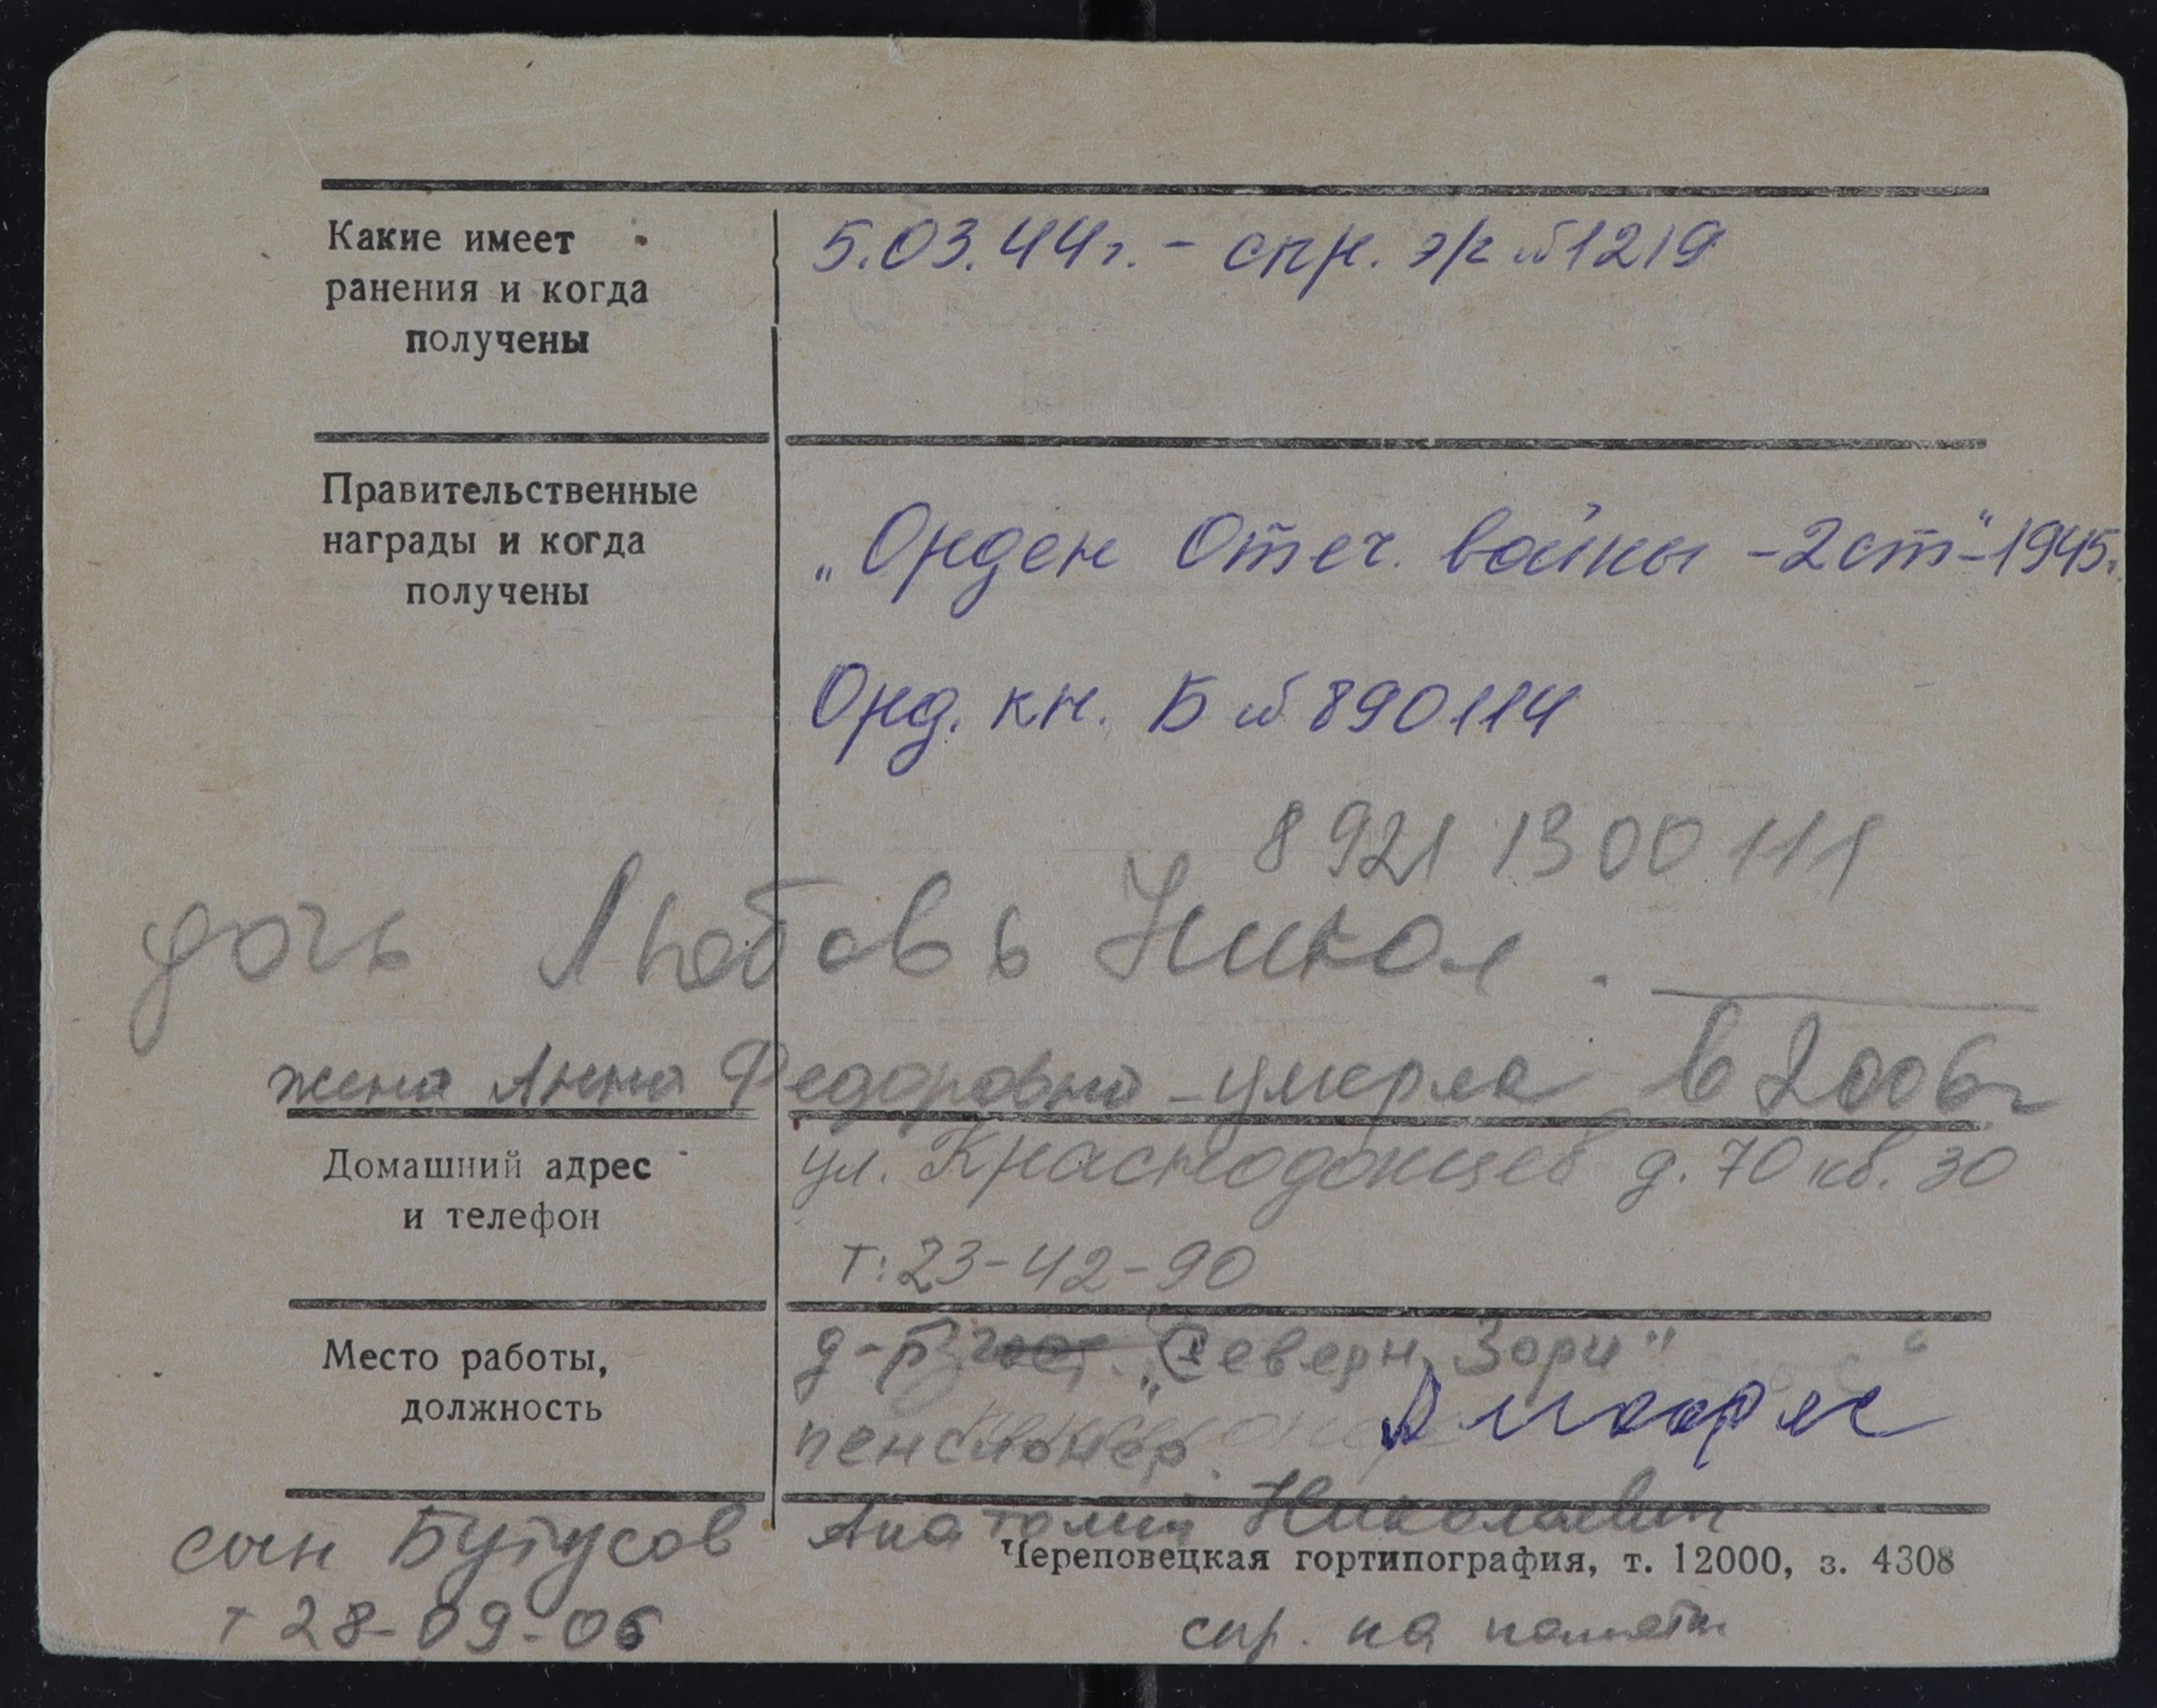 Какие имеет
ранения и когда
получены
5.03.44г. - спр. э/г №1219
Правительственные
награды и когда
получены
„Орден Отеч. войны - 2 ст" - 1945г.
Орд. кн. Б № 890114
8 921 1300 111
дочь Любовь Никол.
жена Анна Федоровна - умерла в 2006г
Домашний адрес
и телефон
ул. Краснодонцев д. 70 кв. 30
т: 23-42-90
Место работы,
должность
„Северн. Зори"
пенсионер.
сын Бутусов Анатолий Николаевич
Череповецкая гортипография, т. 12000, з. 4308
т 28-09-06
спр. на памятн